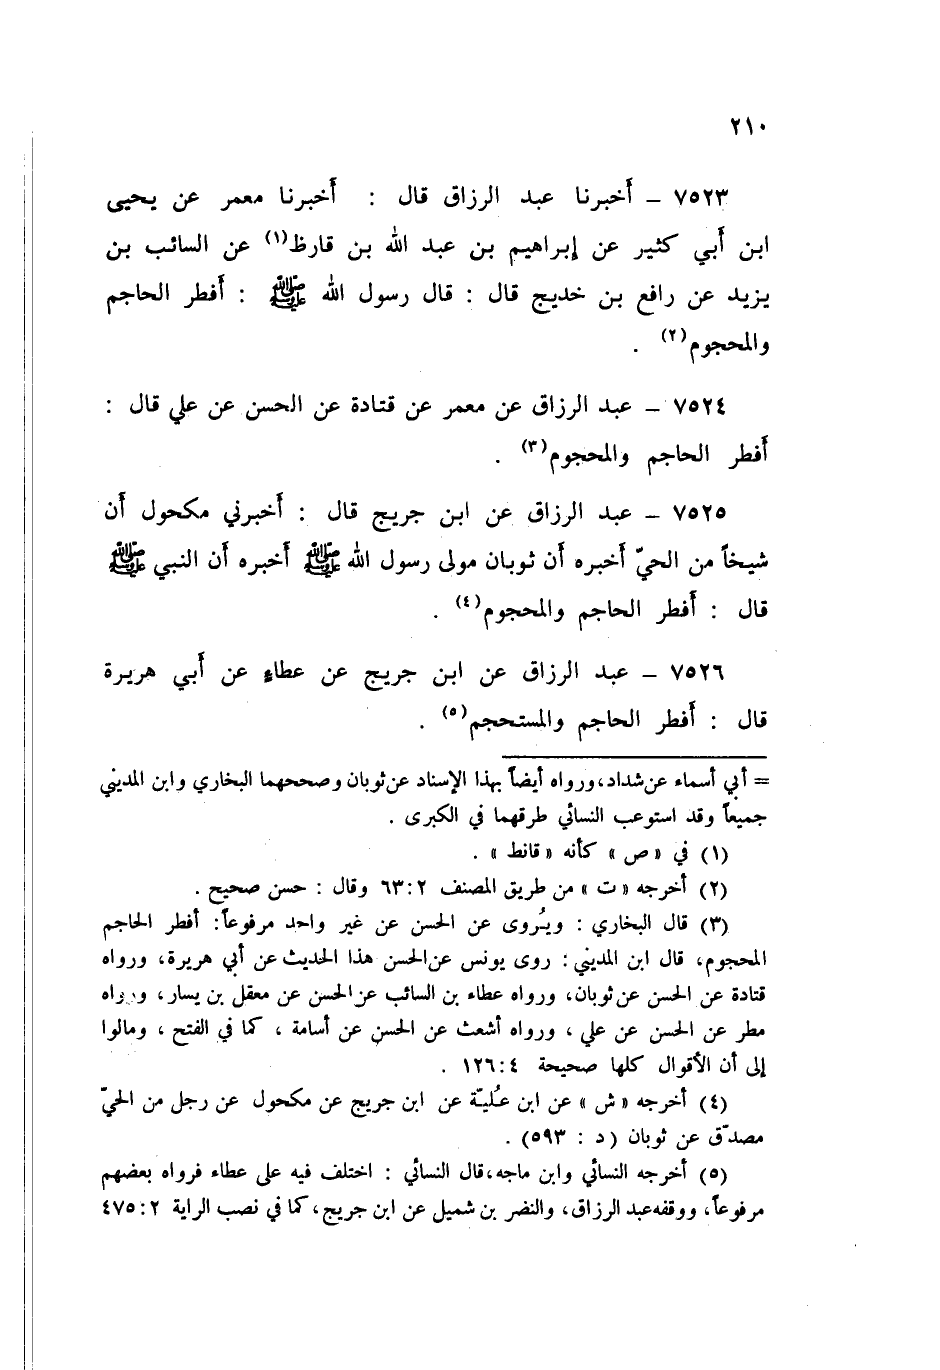 ٢١٠
٧٥٢٣ – أخبرنا عبد الرزاق قال : أخبرنا معمر عن يحيى
ابن أبي كثير عن إبراهيم بن عبد الله بن قارظ(١) عن السائب بن
يزيد عن رافع بن خديج قال : قال رسول الله ﷺ : أفطر الحاجم
والمحجوم(٢) .
٧٥٢٤ – عبد الرزاق عن معمر عن قتادة عن الحسن عن علي قال :
أفطر الحاجم والمحجوم(٣) .
٧٥٢٥ – عبد الرزاق عن ابن جريج قال : أخبرني مكحول أن
شيخاً من الحيّ أخبره أن ثوبان مولى رسول الله ﷺ أخبره أن النبي ﷺ
قال : أفطر الحاجم والمحجوم(٤) .
٧٥٢٦ – عبد الرزاق عن ابن جريج عن عطاءٍ عن أبي هريرة
قال : أفطر الحاجم والمستحجم(٥) .
= أبي أسماء عن شداد، ورواه أيضاً بهذا الإسناد عن ثوبان وصححهما البخاري وابن المديني
جميعاً وقد استوعب النسائي طرقهما في الكبرى .
(١) في « ص » كأنه « قانط » .
(٢) أخرجه « ت » من طريق المصنف ٢:‏٦٣ وقال : حسن صحيح .
(٣) قال البخاري : ويُروى عن الحسن عن غير واحد مرفوعاً: أفطر الحاجم
المحجوم، قال ابن المديني : روى يونس عن الحسن هذا الحديث عن أبي هريرة، ورواه
قتادة عن الحسن عن ثوبان، ورواه عطاء بن السائب عن الحسن عن معقل بن يسار، ورواه
مطر عن الحسن عن علي ، ورواه أشعث عن الحسن عن أسامة ، كما في الفتح ، ومالوا
إلى أن الأقوال كلها صحيحة ٤:‏١٢٦ .
(٤) أخرجه « ش » عن ابن عُليّة عن ابن جريج عن مكحول عن رجل من الحيّ
مصدّق عن ثوبان (د : ٥٩٣) .
(٥) أخرجه النسائي وابن ماجه، قال النسائي : اختلف فيه على عطاء فرواه بعضهم
مرفوعاً، ووقفه عبد الرزاق، والنضر بن شميل عن ابن جريج، كما في نصب الراية ٢:‏٤٧٥